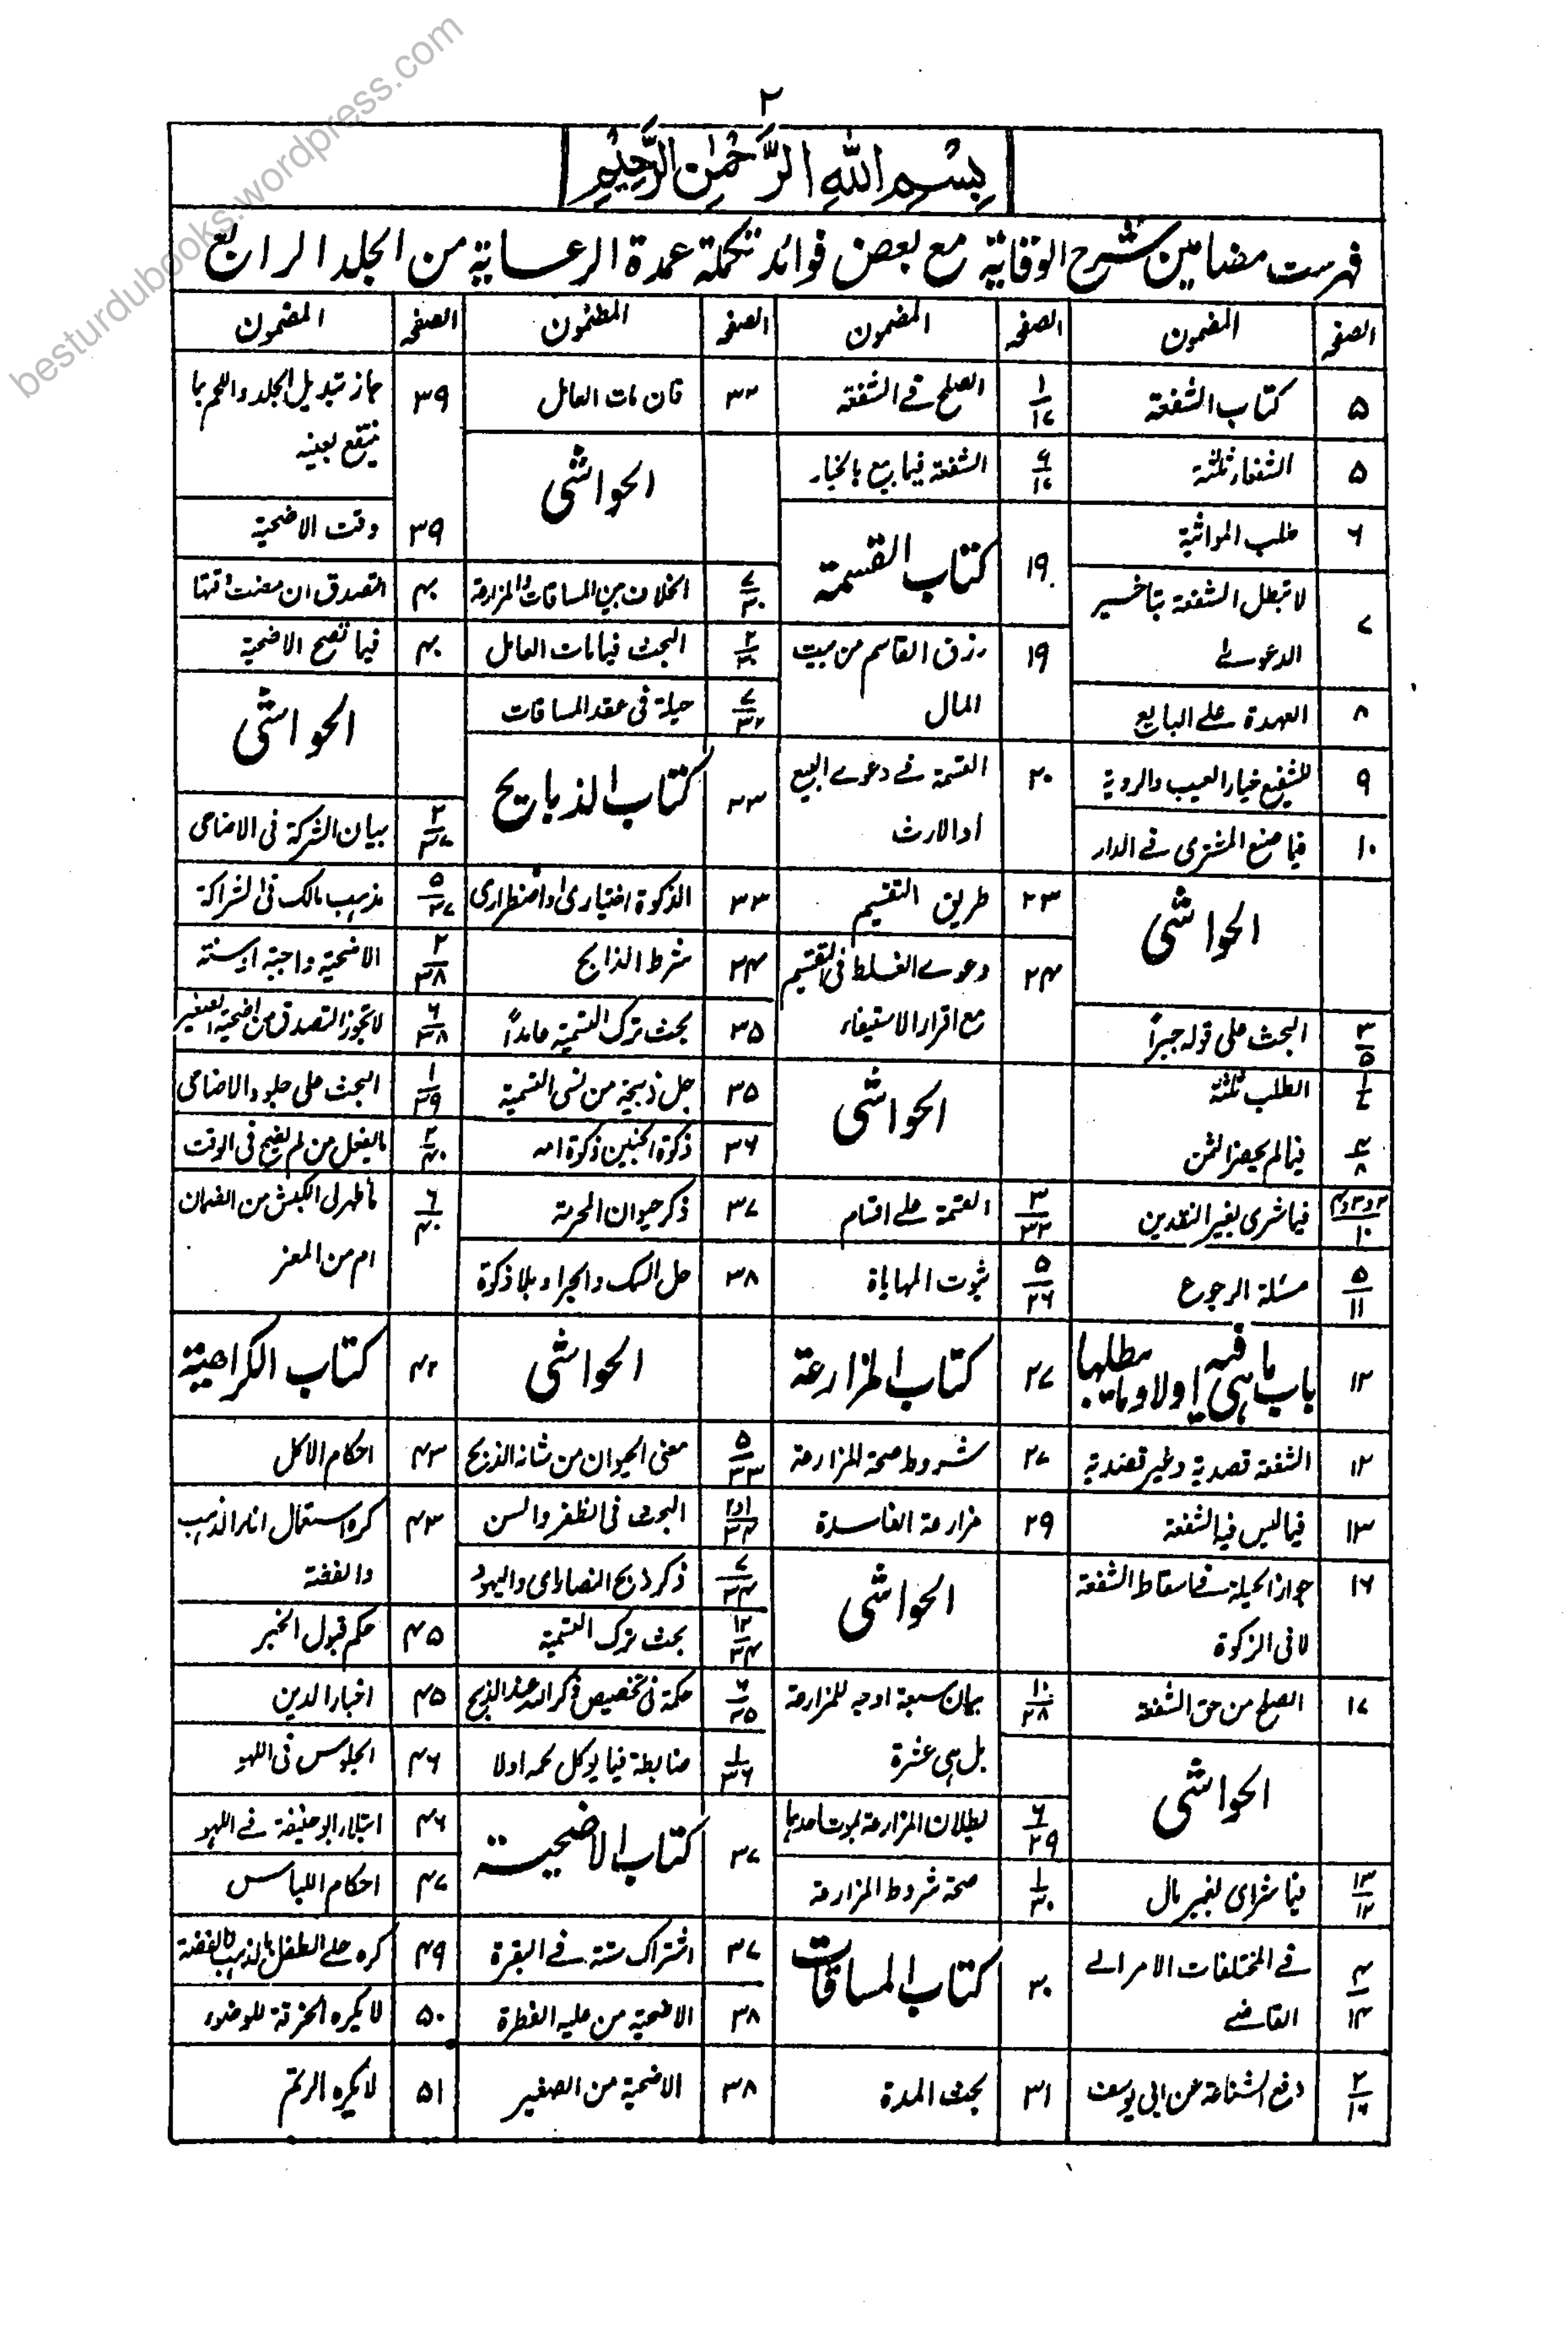 ٢
بِسْمِ اللهِ الرَّحْمٰنِ الرَّحِيْمِ
فهرست مضامين شرح الوقاية مع بعض فوائد تكملة عمدة الرعاية من الجلد الرابع
الصفحہ المضمون الصفحہ المضمون الصفحہ المضمون الصفحہ المضمون
٥ كتاب الشفعة
٥ الشفعاء ثلثة
٦ طلب المواثبة
٧ لا تبطل الشفعة بتاخير
الدعوے
٨ العهدة علے البايع
٩ للشفيع خيار العيب والروية
١٠ فيما صنع المشترى فے الدار
الحواشى
٣/٥ البحث على قوله جبرًا
١/٧ الطلب ثلثة
٤/٨ فيما لم يحضر الثمن
٢و٣و٤/١٠ فيما شرى بغير النقدين
٥/١١ مسئلة الرجوع
١٢ باب ما هى فيه اولا وما يبطلها
١٢ الشفعة قصدية وغير قصدية
١٣ فيما ليس فيه الشفعة
١٦ جواز الحيلة فے اسقاط الشفعة
لا فى الزكوة
١٧ الصلح من حق الشفعة
الحواشى
١٣/١٢ فيما شراى بغير مال
٤/١٤ فے المختلفات الامر الے
القاضے
٢/١٦ دفع الشناعة عن ابى يوسف
١/١٧ الصلح فے الشفعة
٩/١٧ الشفعة فيما بيع بالخيار
١٩ كتاب القسمة
١٩ رزق القاسم من بيت
المال
٢٠ القسمة فے دعوے البيع
او الارث
٢٣ طريق التقسيم
٢٤ دعوے الغلط فى التقسيم
مع اقرار الاستيفاء
الحواشى
٣/٢٢ القسمة علے اقسام
٥/٢٦ ثبوت المهاياة
٢٧ كتاب المزارعة
٢٧ شروط صحة المزارعة
٢٩ مزارعة الفاسدة
الحواشى
١٠/٢٨ بيان سبعة اوجه للمزارعة
بل ہى عشرة
٦/٢٩ بطلان المزارعة بموت احدہما
١/٣٠ صحة شروط المزارعة
٣٠ كتاب المساقات
٣١ بحث المدة
٣٢ فان مات العامل
الحواشى
٧/٣٠ الخلاف بين المساقات والمزارعة
٢/٣٠ البحث فيما مات العامل
٧/٣٢ حيلة فى عقد المساقات
٣٣ كتاب الذبايح
٣٣ الذكوة اختيارى او اضطرارى
٣٤ شرط الذابح
٣٥ بحث ترك التسمية عامدًا
٣٥ حل ذبيحة من نسى التسمية
٣٦ ذكوة الجنين ذكوة امه
٣٧ ذكر حيوان المحرمة
٣٨ حل السمك والجراد بلا ذكوة
الحواشى
٥/٣٣ معنى الحيوان من شانه الذبح
١و٢/٣٤ البحث فى الظفر والسن
٧/٣٤ ذكر ذبح النصاراى واليهود
١٢/٣٤ بحث ترك التسمية
٦/٣٥ حكمة فى تخصيص ذكر الله عند الذبح
١/٣٦ ضابطة فيما يوكل لحمه او لا
٣٧ كتاب الاضحية
٣٧ اشتراك ستة فے البقرة
٣٨ الاضحية من عليه الفطرة
٣٨ الاضحية من الصغير
٣٩ جاز تبديل الجلد واللحم بما
ينتفع بعينه
٣٩ وقت الاضحية
٤٠ التصدق ان مضت وقتها
٤٠ فيما تصح الاضحية
الحواشى
٢/٣٧ بيان الشركة فى الاضاحى
٥/٣٧ مذہب مالك فى الشراكة
٢/٣٨ الاضحية واجبة او سنة
٦/٣٨ لا تجوز التصدق من اضحية الصغير
١/٣٩ البحث على جلود الاضاحى
٢/٤٠ ما يفعل من لم يضح فى الوقت
٦/٤٠ ما ظهر لى الكبش من الضان
ام من المعز
٤٢ كتاب الكراهية
٤٣ احكام الاكل
٤٣ كره استعمال اناء الذہب
والفضة
٤٥ حكم قبول الخبر
٤٥ اخبار الدين
٤٦ الجلوس فى اللهو
٤٦ ابتلاء ابو حنيفة فے اللهو
٤٧ احكام اللباس
٤٩ كره علے الطفل بالذہب والفضة
٥٠ لا يكره الخرقة للوضوء
٥١ لا يكره الرتم
besturdubooks.wordpress.com